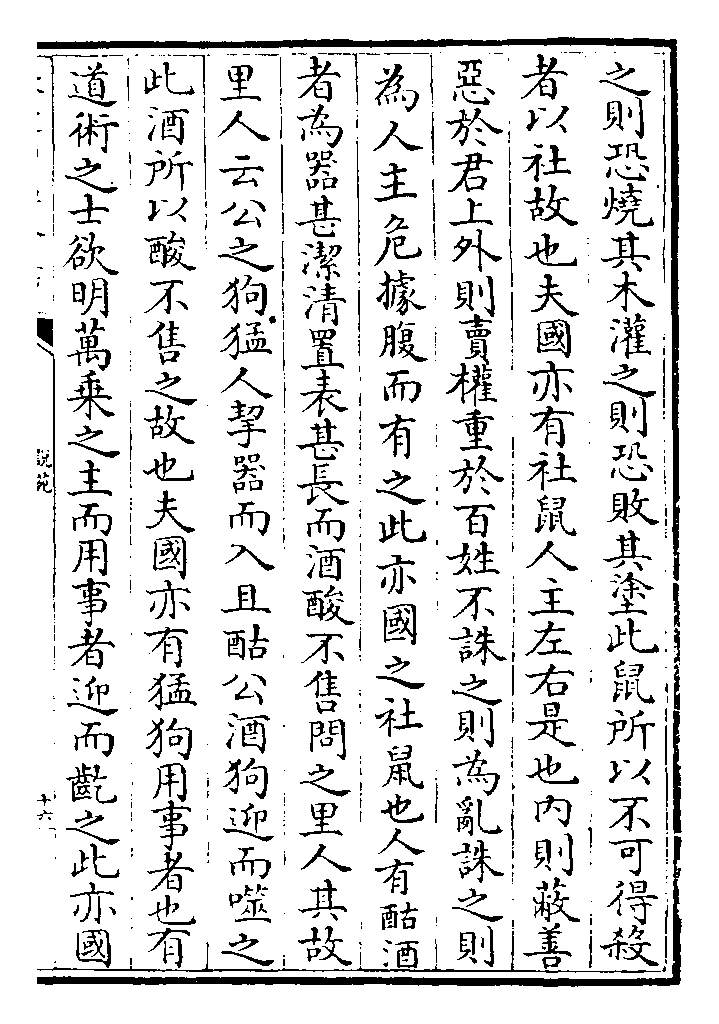 之則恐燒其木灌之則恐敗其塗此鼠所以不可得殺
者以社故也夫國亦有社鼠人主左右是也內則蔽善
惡於君上外則賣權重於百姓不誅之則為亂誅之則
為人主危據腹而有之此亦國之社鼠也人有酤酒
者為器甚潔清置表甚長而酒酸不售問之里人其故
里人云公之狗猛人挈器而入且酤公酒狗迎而噬之
此酒所以酸不售之故也夫國亦有猛狗用事者也有
道術之士欲明萬乗之主而用事者迎而齕之此亦國
說苑
十六